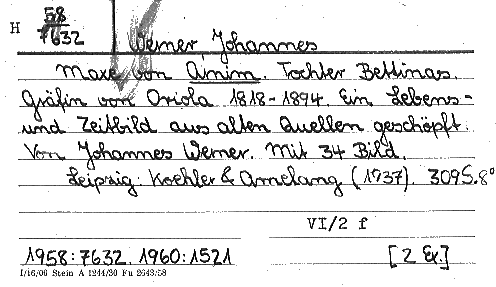 H 58/7632
Werner, Johannes
Maxe von Arnim. Tochter Bettinas.
Gräfin von Oriola 1818-1894. Ein Lebens-
und Zeitbild aus alten Quellen geschöpft.
Von Johannes Werner. Mit 34 Bild.
Leipzig: Koehler & Amelang (1937). 309 S. 8°
VI/2 f
1958:7632. 1960:1521 [2 Ex.]
I/16/06 Stein A 1244/30 Fu 2643/58